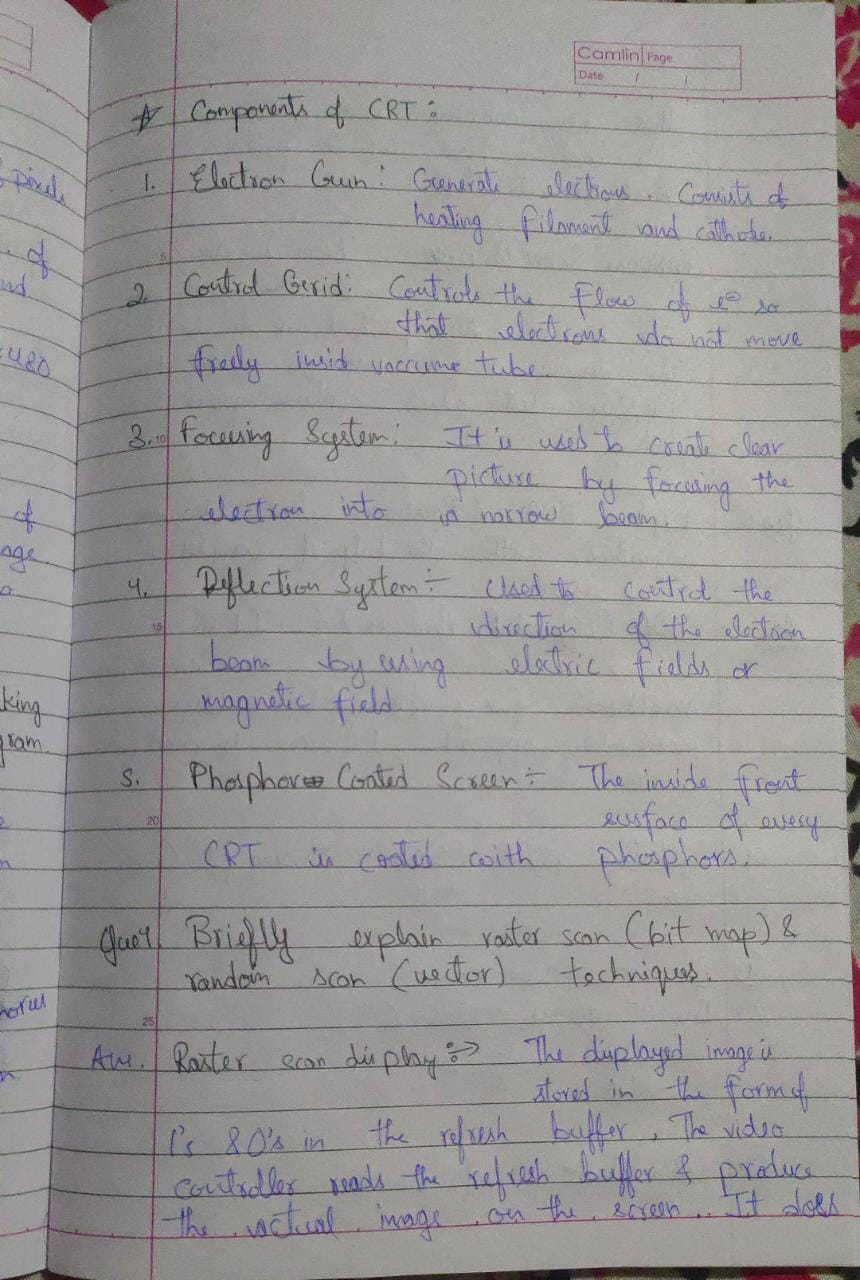 Camlin Page
Date / /
☆ Components of CRT :
1. Electron Gun : Generate electrons. Consists of
heating filament and cathode.
5
2. Control Grid : Controls the flow of e⊖ so
that electrons do not move
freely insid vaccume tube.
3. 10 Focusing System : It is used to create clear
picture by focusing the
electron into a narrow beam.
4. Deflection System :- Used to control the
15 direction of the electron
beam by using electric fields or
magnetic field
5. Phosphor Coated Screen :- The inside front
20 surface of every
CRT is coated with phosphors.
Que 4 Briefly explain raster scan (bit map) &
random scan (vector) techniques.
25
Ans. Raster scan display :→ The displayed image is
stored in the form of
1's & 0's in the refresh buffer, The video
controller reads the refresh buffer & produce
the actual image on the screen. It does
pixels
of
480
of
age
king
gram